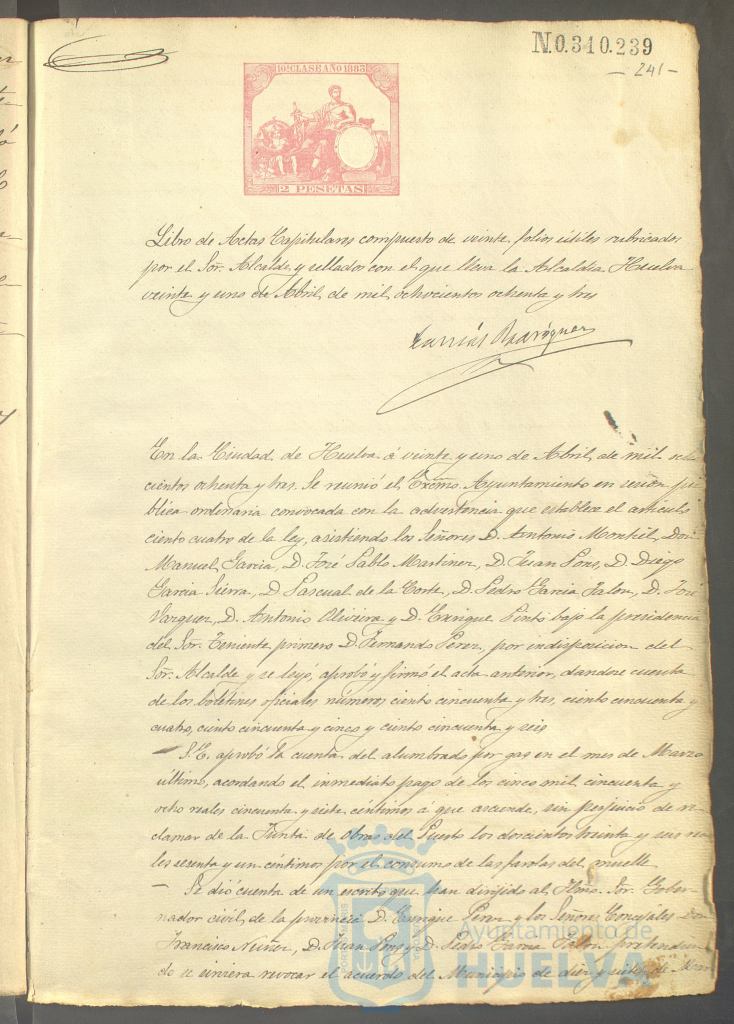 N.0.310.239
- 241 -
10ª CLASE AÑO 1883
2 PESETAS
Libro de Actas Capitulares compuesto de veinte folios útiles rubricados
por el Sor. Alcalde y sellados con el que lleva la Alcaldia Huelva
veinte y uno de Abril de mil ochocientos ochenta y tres
Rodriguez
En la Ciudad de Huelva á veinte y uno de Abril de mil ocho
cientos ochenta y tres. Se reunió el Excmo. Ayuntamiento en sesion pú
blica ordinaria convocada con la advertencia que establece el articulo
ciento cuatro de la ley, asistiendo los Señores D. Antonio Montiel, Don
Manuel Garcia, D. José Pablo Martinez, D. Juan Pons, D. Diego
Garcia Sierra, D. Pascual de la Corte, D. Pedro Garcia Jalon, D. José
Vazquez, D. Antonio Oliveira y D. Enrique Pinto bajo la presidencia
del Sor. Teniente primero D. Fernando Perez, por indisposicion del
Sor. Alcalde y se leyó, aprobó y firmó el acta anterior, dandose cuenta
de los boletines oficiales números ciento cincuenta y tres, ciento cincuenta y
cuatro, ciento cincuenta y cinco y ciento cincuenta y seis
- S.E. aprobó la cuenta del alumbrado por gas en el mes de Marzo
último, acordando el inmediato pago de los cinco mil cincuenta y
ocho reales cincuenta y siete céntimos a que asciende, sin perjuicio de re
clamar de la Junta de Obras del Puerto los doscientos treinta y seis rea
les sesenta y un céntimos por el consumo de las farolas del muelle
- Se dió cuenta de un escrito que han dirijido al Iltmo. Sor. Gober
nador civil de la provincia D. Enrique Perez y los Señores Concejales Don
Francisco Nuñez, D. Juan Pons y D. Pedro Garcia Jalon pretendien
do se sirviera revocar el acuerdo del Municipio de diez y siete de
Ayuntamiento de
HUELVA